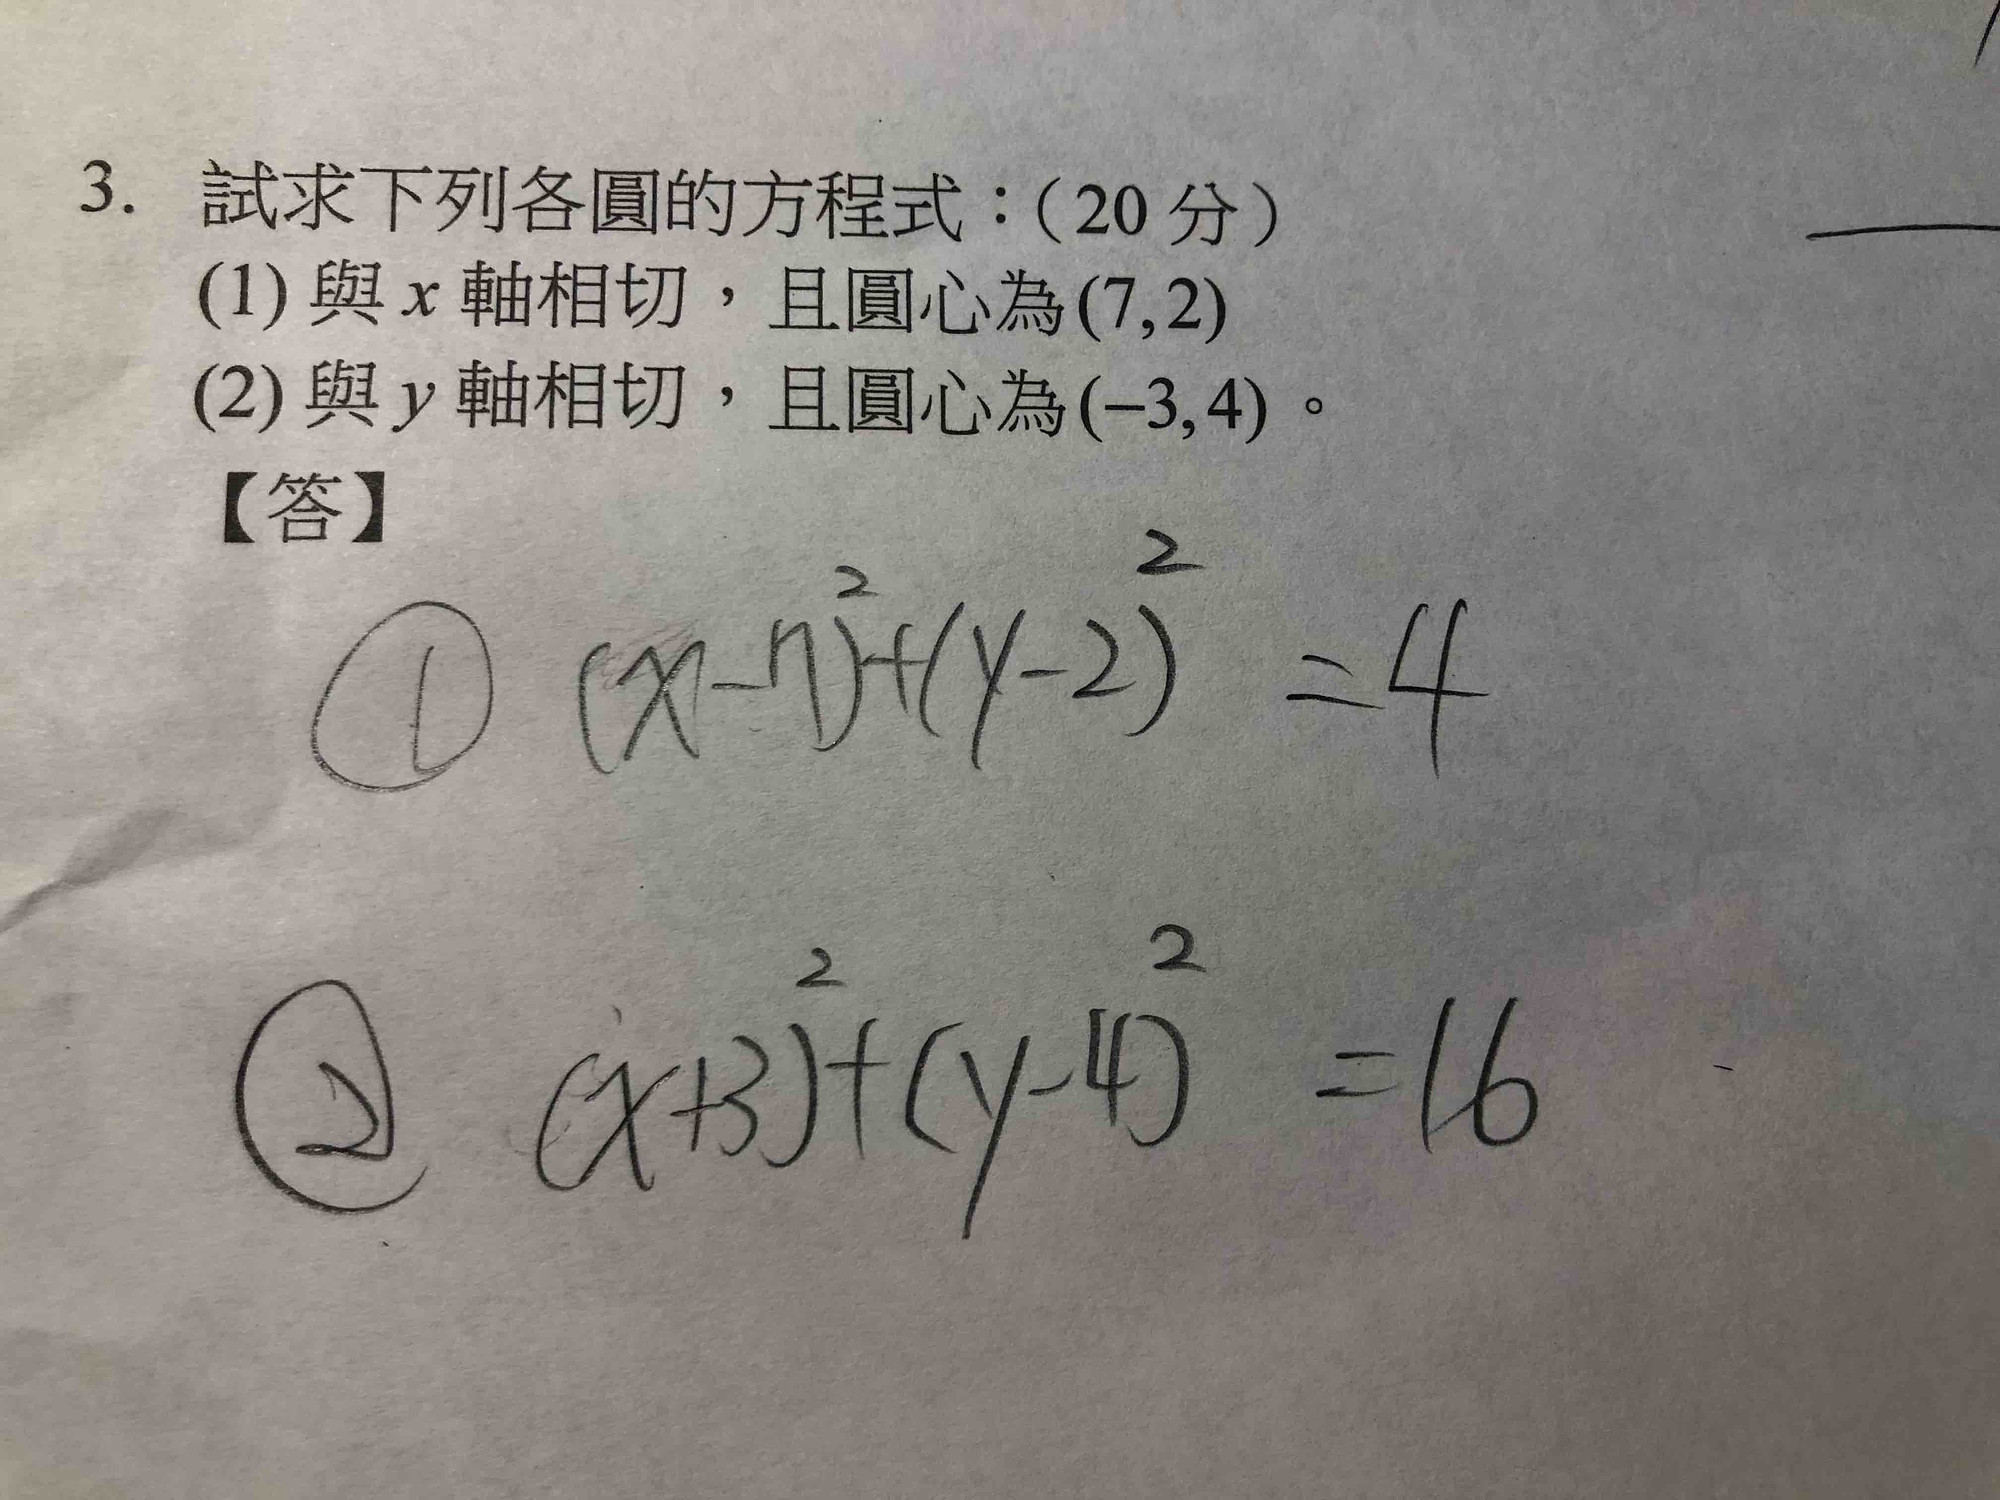 3. 試求下列各圓的方程式：（20 分）
(1) 與 x 軸相切，且圓心為(7,2)
(2) 與 y 軸相切，且圓心為(−3,4)。
【答】
① (x-7)²+(y-2)² =4
② (x+3)²+(y-4)² =16